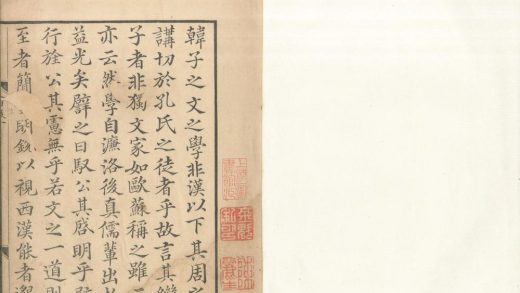 韓子之文之學非漢以下其周之
講切於孔氏之徒者乎故言其
子者非獨文家如歐蘇稱之雖
亦云然學自濂洛後真儒輩出
益光矣譬之日馭公其啓明乎
行旌公其憲無乎若文之一道則
至者簡以視西漢能者